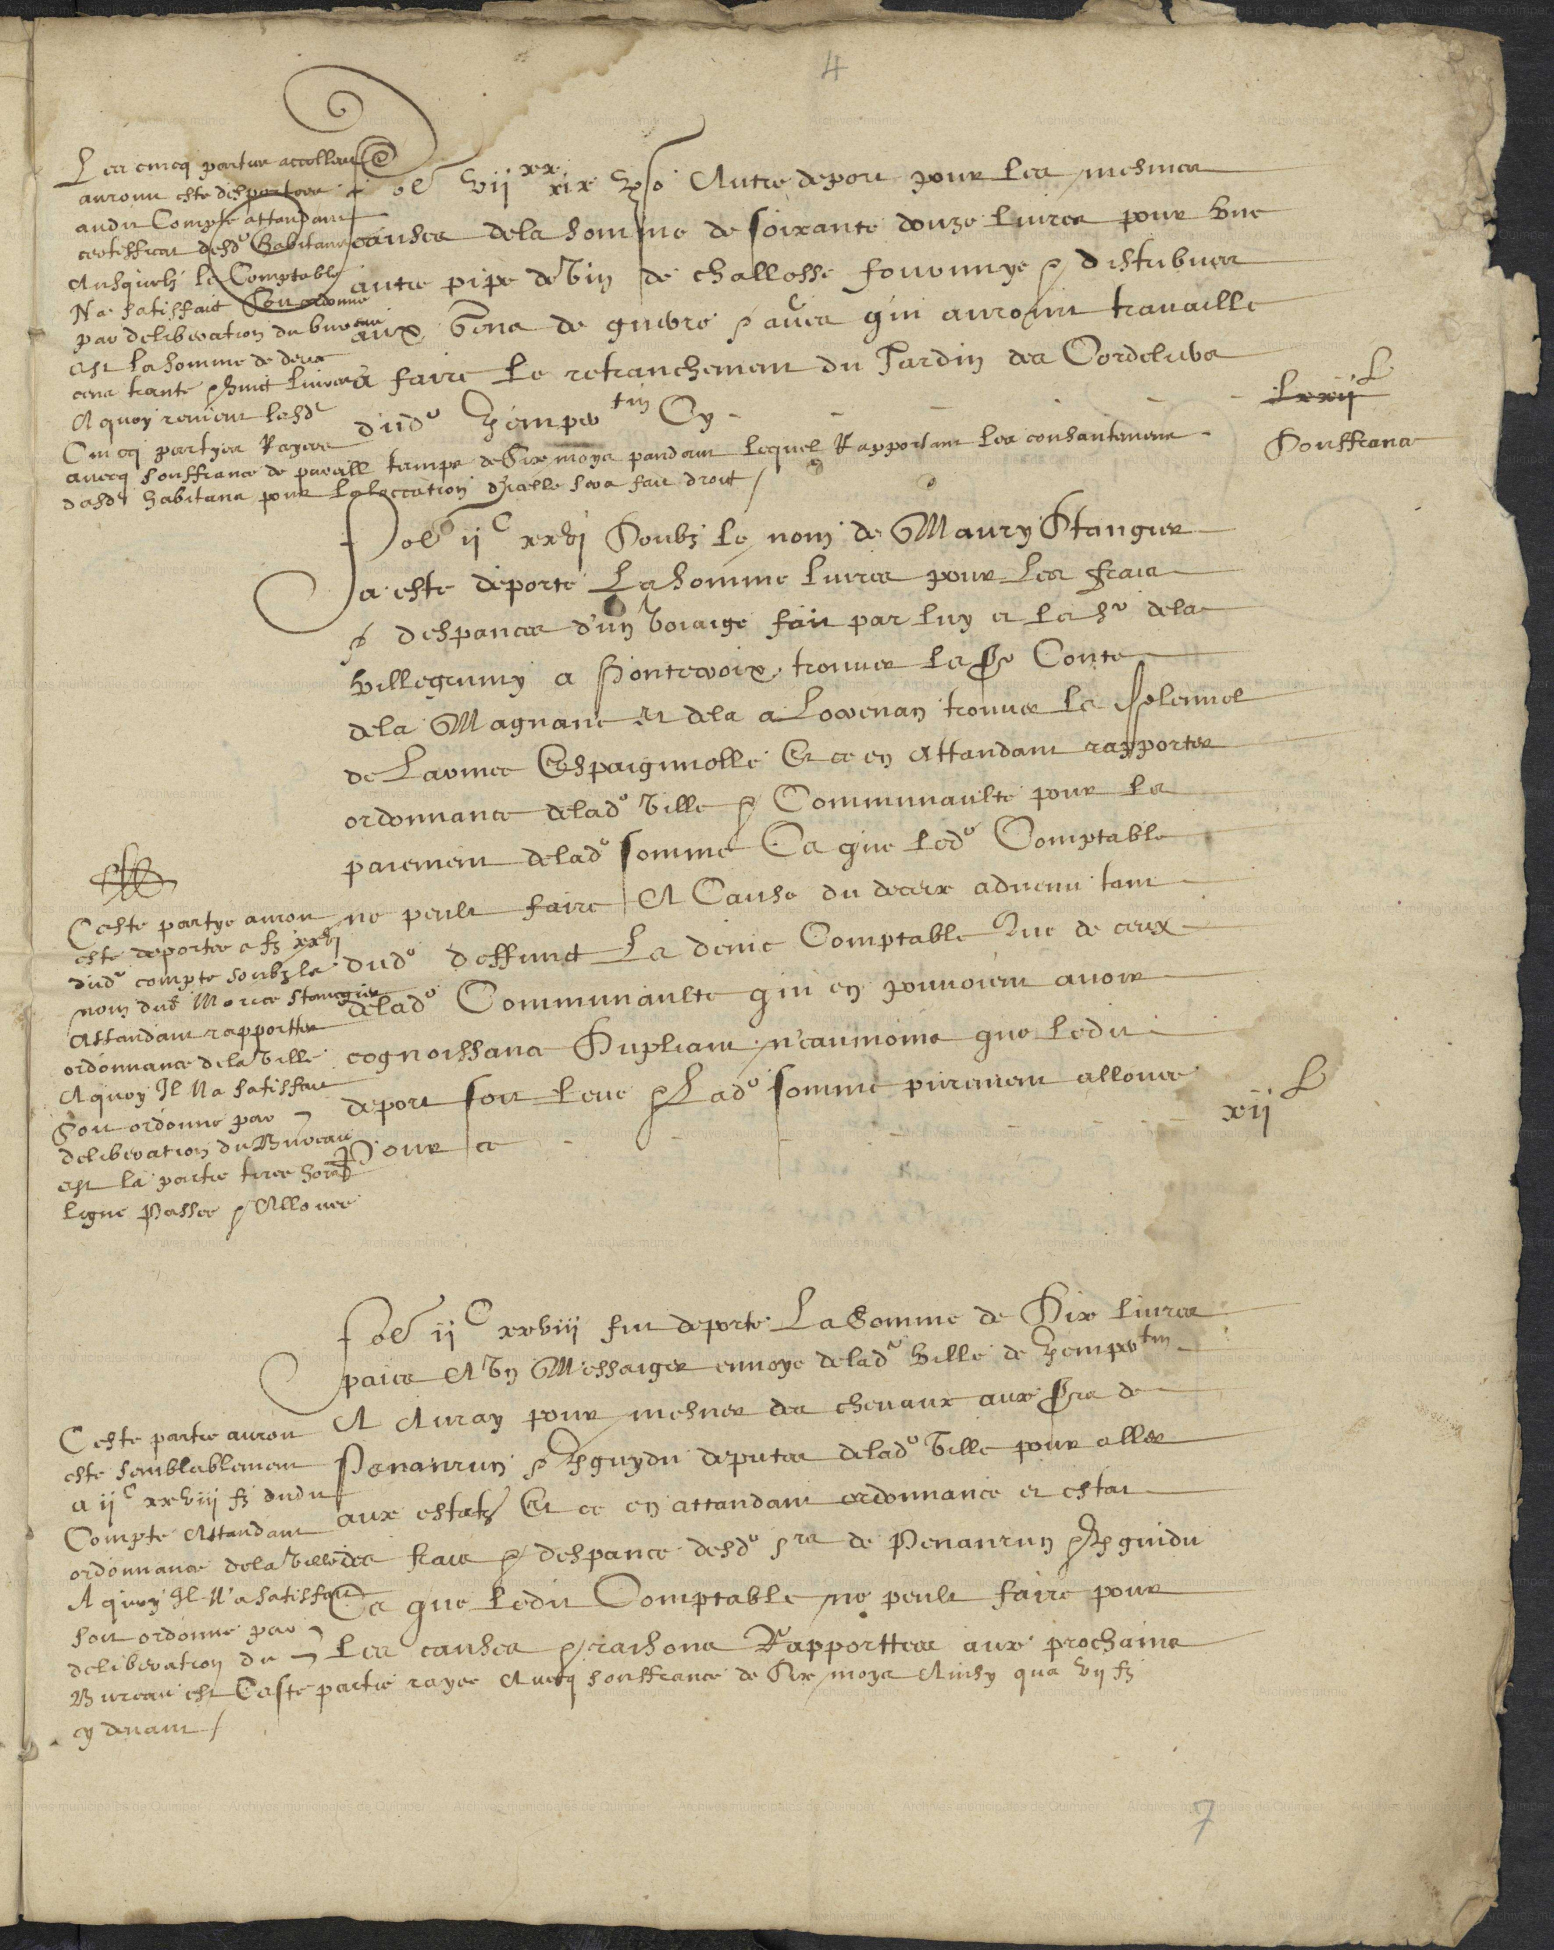 4
Les cincq partyes accollees
auroint este desportees
audit Compte attandant
certifficat desd. habitans
Ausquelz le Comptable
Na satisfaict Soit ordonne
par deliberation du bureau
est la somme de deux
cens trante & huict livres
A quoy revient lesd.
Cincq partyes Rayees
avecq souffrance de pareill temps de Six moys pandant lequel Rapportant les consantemens
dasd. habitans pour l'alocation d'icelle sera fait droict /
fo vii xx xix vso Autre deport pour les mesmes
causes de la somme de soixante douze livres pour une
autre pipe de vin de challosse fournnye & distribuee
aux gens de guerre & aultres qui auroint travaille
a faire le retranchement du Jardin des Cordeliers
dud. Kempertin Cy
lxxii L
Souffrance
fo ii C xxvi Soubz le nom de Maury Stanguer
a este deporte La somme livres pour les frais
& despances d'un voiaige fait par luy et le sr de la
villegruiny a Pontecroix trouver le sr Conte
de la Magnane et de la a Locrenan trouver le
de Larmee Espaignolle Et ce en Attandant rapporter
ordonnance de lad. ville & Communaulte pour le
paiement de lad. somme Ce que led. Comptable
ne peult faire A Cause du deceix advenu tant
dud. deffunct Le denic Comptable Que de ceux
de lad. Communaulte qui en pouvoient avoir
cognoissance Supliant neanmoins que ledit
deport soit leve & Lad. somme purement allouee
Pour ce
xii L
Ceste partye auroit
este deportee a fo xxvi
dud. compte soubz le
nom dud. Morice Stanguer
Attandant rapportter
ordonnance de la ville
A quoy Il Na satisfait
Soit ordonne par
deliberation du Bureau
est la partie tiree hors
ligne Passee & Allouee
fo ii C xxviii fut deporte La Somme de Dix livres
paiee A Un Messaiger envoye de lad. ville de Kempertin
A Auray pour mesner des chevaux aux srs de
Penanrun & Kguydu deputes de lad. ville pour aller
aux estatz Et ce en attandant ordonnance et estat
des frais & despance desd. srs de Penanrun & Kguidu
Ce que ledit Comptable ne peult faire pour
Les causes & raisons Rapporttees aux prochains
Ceste partie auroit
este semblablement
a ii C xxviii fo dudit
Compte Attandant
ordonnance de la ville
A quoy Il N'a satisfait
soit ordonne par
deliberation du
Bureau est Ceste partie rayee Avecq souffrance de Six moys Ainsy qua vii fo
cy devant /
7